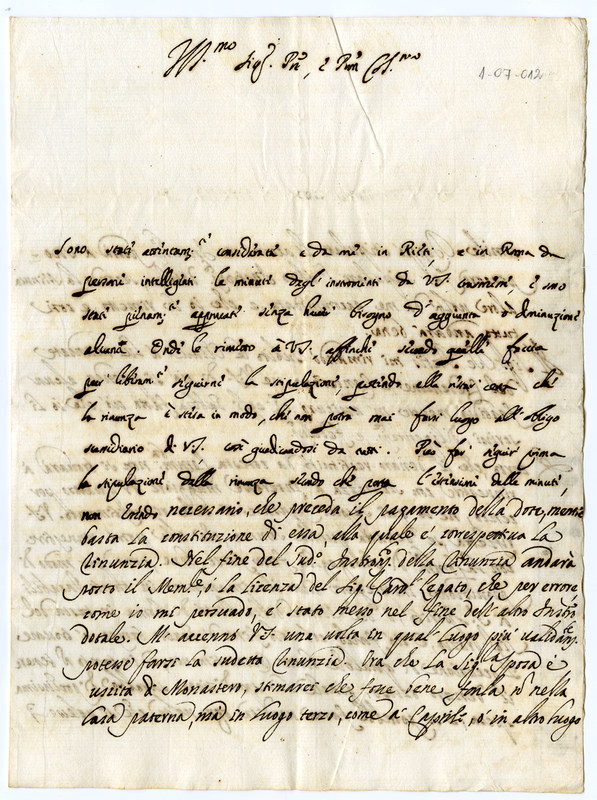 Ill.mo Sig.r Prê, e Pron Col.mo
1-07-012
Sono stati attentam.te considerate e da me in Rieti, e in Roma da
persone intelligenti le minute degl' instromenti da VS. trasmesse, e sono
stati pienam.te approvati senza haver bisogno d'aggiunta ò diminuzione
alcuna. Onde le rimetto à VS., affinche secondo quelle faccia
pur liberam.te seguirne la stipulazione, potendo ella restar certa che
la rinunza è stesa in modo, che non potrà mai farsi luogo all' obligo
sussidiario di VS., così giudicandosi da tutti. Può far seguir prima
la stipulazione della rinunza secondo che porta l'estensione delle minute,
non essendo necessario, che preceda il pagamento della dote, mentre
basta la constituzione di essa, alla quale è correspettiva la
Rinunzia. Nel fine del sud.o Instrom. della Rinunzia andarà
posto il Mem.le, ò la licenza del Sig. Card. Legato, che per errore,
come io mi persuado, è stato messo nel fine dell' altro Instro
dotale. Mi accennò VS. una volta in qual luogo più validam.te
potesse farsi la sudetta Rinunzia. Ora che la Sig.ra sposa è
uscita di Monastero, stimarei che fosse bene farla nō nella
Casa paterna, mà in luogo terzo, come a' Caprile, ò in altro luogo